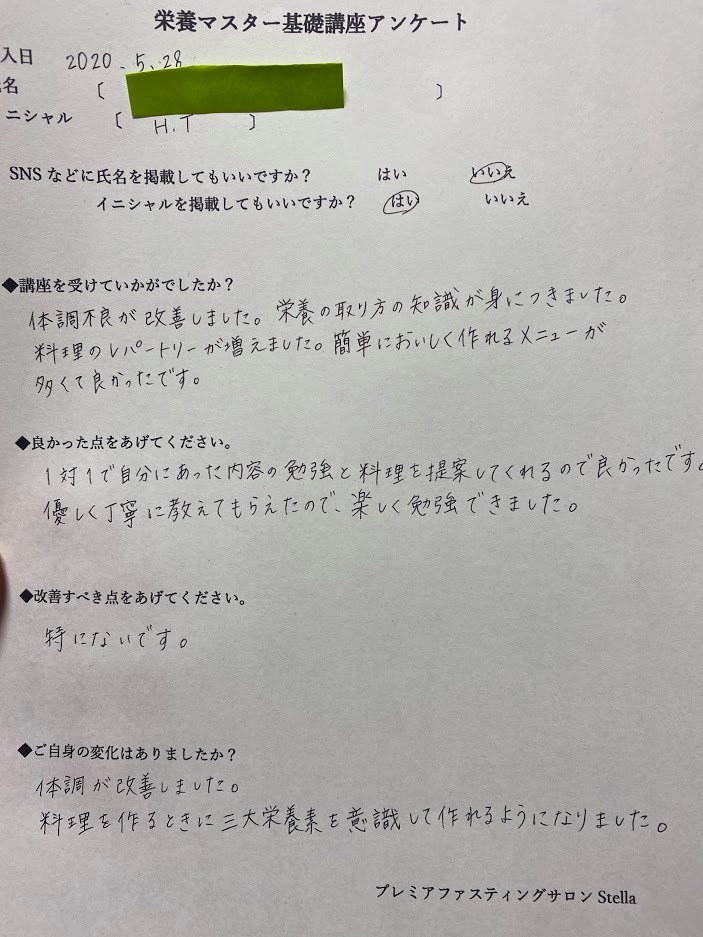 栄養マスター基礎講座アンケート
入日 2020.5.28
名 〔 〕
ニシャル 〔 H.T 〕
SNSなどに氏名を掲載してもいいですか? はい いいえ
イニシャルを掲載してもいいですか? はい いいえ
◆講座を受けていかがでしたか?
体調不良が改善しました。栄養の取り方の知識が身につきました。
料理のレパートリーが増えました。簡単においしく作れるメニューが
多くて良かったです。
◆良かった点をあげてください。
1対1で自分にあった内容の勉強と料理を提案してくれるので良かったです。
優しく丁寧に教えてもらえたので、楽しく勉強できました。
◆改善すべき点をあげてください。
特にないです。
◆ご自身の変化はありましたか?
体調が改善しました。
料理を作るときに三大栄養素を意識して作れるようになりました。
プレミアファスティングサロンStella